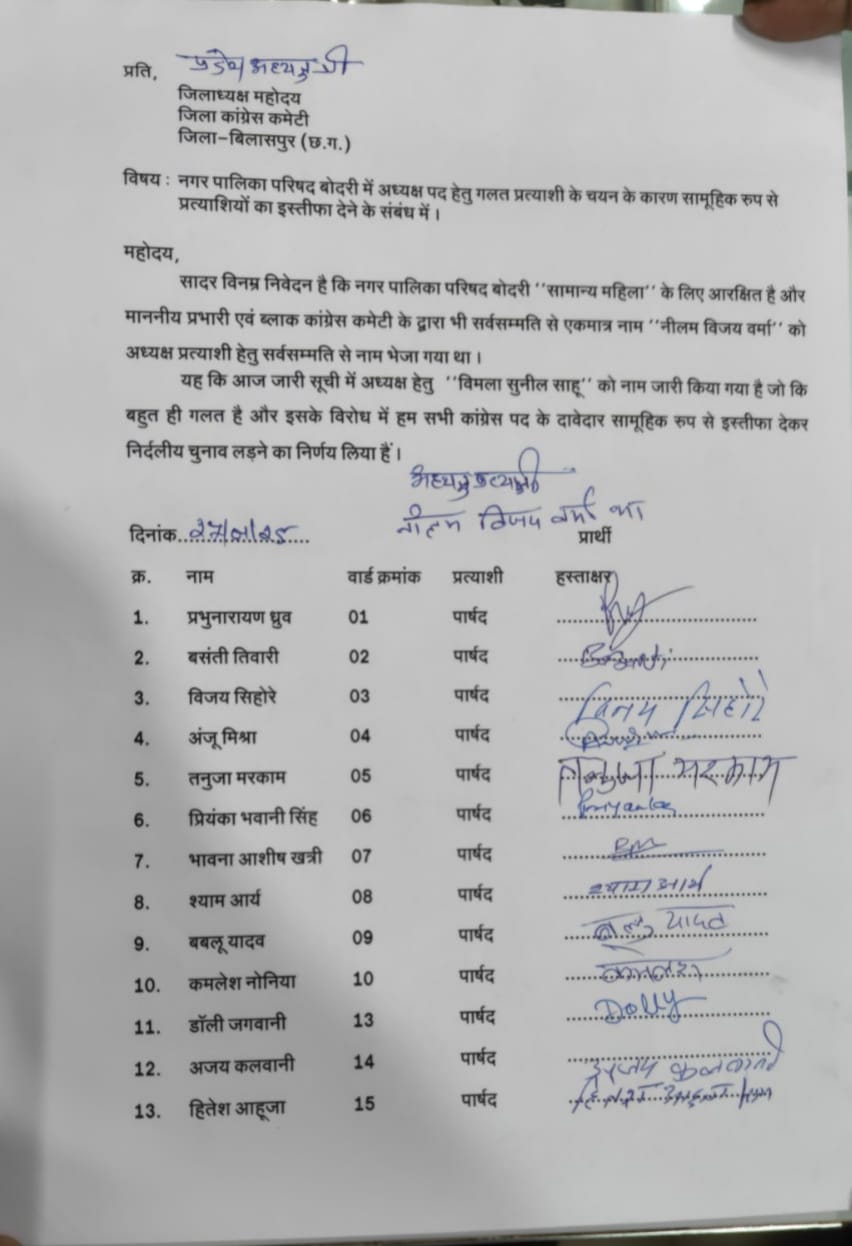 प्रति, प्रदेश अध्यक्ष श्री
जिलाध्यक्ष महोदय
जिला कांग्रेस कमेटी
जिला–बिलासपुर (छ.ग.)
विषय : नगर पालिका परिषद बोदरी में अध्यक्ष पद हेतु गलत प्रत्याशी के चयन के कारण सामूहिक रुप से
प्रत्याशियों का इस्तीफा देने के संबंध में ।
महोदय,
सादर विनम्र निवेदन है कि नगर पालिका परिषद बोदरी ''सामान्य महिला'' के लिए आरक्षित है और
माननीय प्रभारी एवं ब्लाक कांग्रेस कमेटी के द्वारा भी सर्वसम्मति से एकमात्र नाम ''नीलम विजय वर्मा'' को
अध्यक्ष प्रत्याशी हेतु सर्वसम्मति से नाम भेजा गया था ।
यह कि आज जारी सूची में अध्यक्ष हेतु ''विमला सुनील साहू'' को नाम जारी किया गया है जो कि
बहुत ही गलत है और इसके विरोध में हम सभी कांग्रेस पद के दावेदार सामूहिक रुप से इस्तीफा देकर
निर्दलीय चुनाव लड़ने का निर्णय लिया हैं ।
अध्यक्ष प्रत्याशी
नीलम विजय वर्मा
दिनांक..27/1/25.... प्रार्थी
क्र. नाम वार्ड क्रमांक प्रत्याशी हस्ताक्षर
1. प्रभुनारायण ध्रुव 01 पार्षद
2. बसंती तिवारी 02 पार्षद
3. विजय सिहोरे 03 पार्षद विजय सिहोरे
4. अंजू मिश्रा 04 पार्षद
5. तनुजा मरकाम 05 पार्षद तनुजा मरकाम
6. प्रियंका भवानी सिंह 06 पार्षद Priyanka
7. भावना आशीष खत्री 07 पार्षद
8. श्याम आर्य 08 पार्षद श्याम आर्य
9. बबलू यादव 09 पार्षद बबलु यादव
10. कमलेश नोनिया 10 पार्षद कमलेश
11. डॉली जगवानी 13 पार्षद Dolly
12. अजय कलवानी 14 पार्षद अजय कलवानी
13. हितेश आहूजा 15 पार्षद